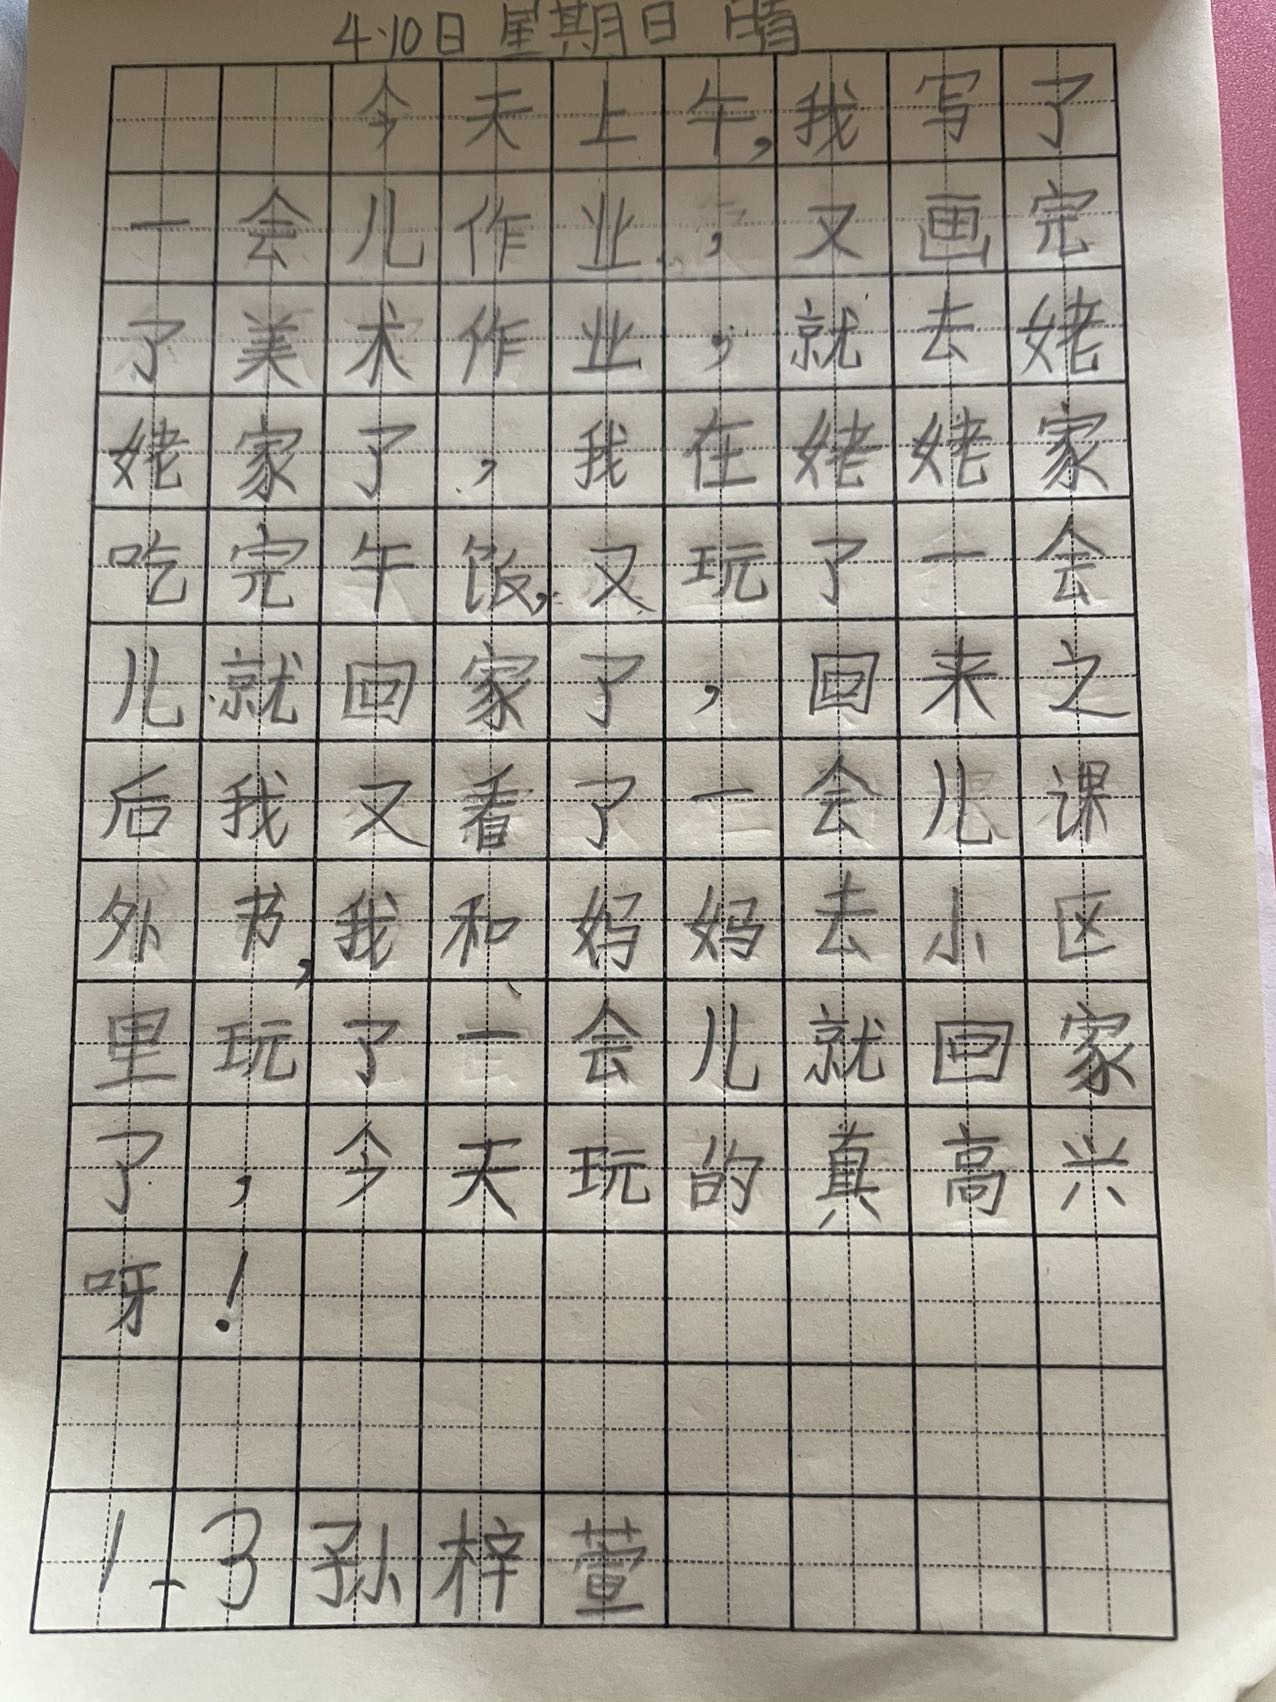 4.10日 星期日 晴
今天上午,我写了
一会儿作业,又画完
了美术作业,就去姥
姥家了,我在姥姥家
吃完午饭,又玩了一会
儿就回家了,回来之
后我又看了一会儿课
外书,我和妈妈去小区
里玩了一会儿就回家
了,今天玩的真高兴
呀!
1-3孙梓萱